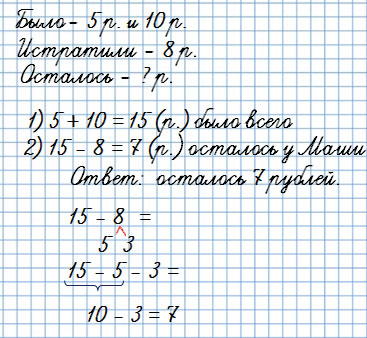 Было - 5 р. и 10 р.
Истратили - 8 р.
Осталось - ? р.
1) 5 + 10 = 15 (р.) было всего
2) 15 - 8 = 7 (р.) осталось у Маши
Ответ: осталось 7 рублей.
15 - 8 =
5 3
15 - 5 - 3 =
10 - 3 = 7